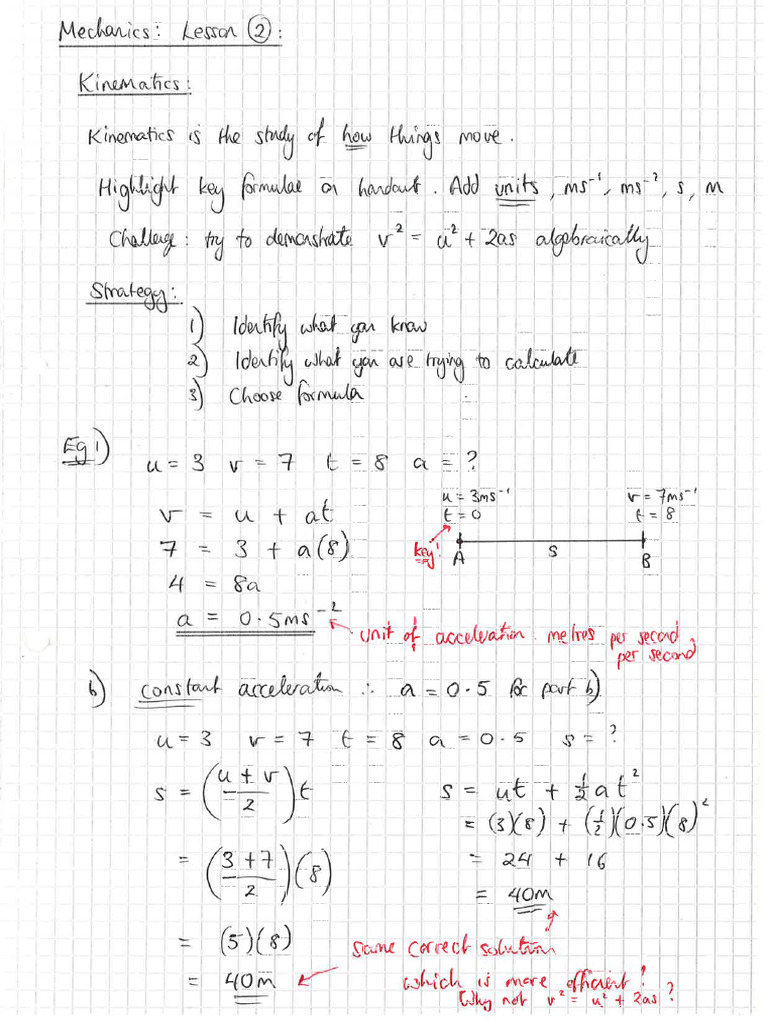 Mechanics: Lesson ②:
Kinematics:
Kinematics is the study of how things move.
Highlight key formulae on handout. Add units, ms⁻¹, ms⁻², s, m
Challenge: try to demonstrate v² = u² + 2as algebraically
Strategy:
1) Identify what you know
2) Identify what you are trying to calculate
3) Choose formula
Eg 1)
u = 3 v = 7 t = 8 a = ?
v = u + at
7 = 3 + a(8)
4 = 8a
a = 0.5ms⁻²
u = 3ms⁻¹ v = 7ms⁻¹
t = 0 t = 8
key!
A s B
unit of acceleration: metres per second,
per second
b) constant acceleration ∴ a = 0.5 for part b)
u = 3 v = 7 t = 8 a = 0.5 s = ?
s = ((u + v)/2)t
= ((3 + 7)/2)(8)
= (5)(8)
= 40m
s = ut + ½at²
= (3)(8) + (½)(0.5)(8)²
= 24 + 16
= 40m
same correct solution
which is more efficient?
Why not v² = u² + 2as?